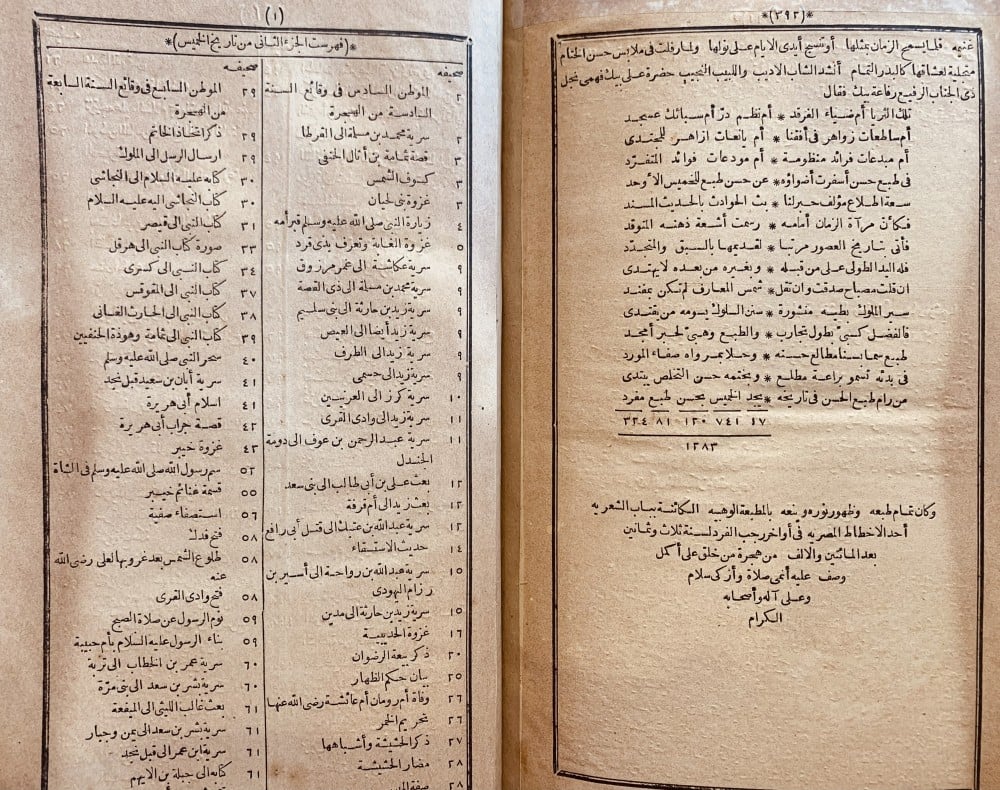 *(٣٩٢)*
غنيه قلما يسمح الزمان بمثلها أو تنسج أيدى الايام على نولها ولما رفلت فى ملابس حسن الختام
متجلية لعشاقها كالبدر التمام أنشد الشاب الاديب واللبيب النجيب حضرة على بيك فهمى نجل
ذى الجناب الرفيع رفاعة بيك فقال
تلك الثريا أم ضياء الفرقد * أم نظم در أم سبائك عسجد
أم ساطعات زواهر فى أفقنا * أم يانعات ازاهر للمجتدى
أم مبدعات فرائد منظومة * أم مودعات فوائد المتفرد
فى طبع حسن أسفرت أضواؤه * عن حسن طبع للخميس الأوحد
سعة اطلاع مؤلف حبر لنا * بث الحوادث بالحديث المسند
فكأن مرآة الزمان أمامه * رسمت أشعة ذهنه المتوقد
فأتى بتاريخ العصور مرتبا * لقديمها بالسبق والمتجدد
فله اليد الطولى على من قبله * وبغيره من بعده لا يهتدى
ان قلت مصباح صدقت وان تقل * شمس المعارف لم تكن بمفند
سير الملوك بطيه منشورة * سنن السلوك بسومه من يقتدى
فالفضل كسبى بطول تجارب * والطبع وهبى لحبر أمجد
طبع سما بسنا مطالع حسنه * وحلا بمرواه صفاء المورد
فى بدئه تسمو براعة مطلع * وبختمه حسن التخلص يبتدى
من رام طبع الحسن فى تاريخه * يجد الخميس بحسن طبع مفرد
١٧ ٧٤١ ١٢٠ ٨١ ٣٢٤
١٢٨٣
وكان تمام طبعه وظهور نوره وينعه بالمطبعة الوهبيه الكائنة بباب الشعريه
أحد الاخطاط المصريه فى أواخر رجب الفرد لسنة ثلاث وثمانين
بعد المائتين والالف من هجرة من خلق على أكمل
وصف عليه أنمى صلاة وأزكى سلام
وعلى آله وأصحابه
الكرام
(١)
*(فهرست الجزء الثانى من تاريخ الخميس)*
صحيفه
٢ الموطن السادس فى وقائع السنة
السادسة من الهجرة
٢ سرية محمد بن مسلمة الى القرطا
٣ قصة ثمامة بن أثال الحنفى
٣ كسوف الشمس
٣ غزوة بنى لحيان
٤ زيارة النبى صلى الله عليه وسلم قبر أمه
٥ غزوة الغابة وتعرف بذى قرد
٩ سرية عكاشة الى غمر مرزوق
٩ سرية محمد بن مسلمة الى ذى القصة
٩ سرية زيد بن حارثة الى بنى سليم
٩ سرية زيد أيضا الى العيص
٩ سرية زيد الى الطرف
٩ سرية زيد الى حسمى
١٠ سرية كرز الى العرنيين
١١ سرية زيد الى وادى القرى
١١ سرية عبد الرحمن بن عوف الى دومة
الجندل
١٢ بعث على بن أبى طالب الى بنى سعد
١٢ بعث زيد الى أم قرفة
١٢ سرية عبد الله بن عتيك الى قتل أبى رافع
١٤ حديث الاستسقاء
١٥ سرية عبد الله بن رواحة الى أسير بن
رزام اليهودى
١٥ سرية زيد بن حارثة الى مدين
١٦ غزوة الحديبية
٢٠ ذكر بيعة الرضوان
٢٥ بيان حكم الظهار
٢٦ وفاة أم رومان أم عائشة رضى الله عنها
٢٦ تحريم الخمر
٢٧ ذكر الحشيشة وأشباهها
٢٨ مضار الحشيشة
٢٨ صفة
صحيفه
٢٩ الموطن السابع فى وقائع السنة السابعة
من الهجرة
٢٩ ذكر اتخاذ الخاتم
٢٩ ارسال الرسل الى الملوك
٣٠ كتابه عليه السلام الى النجاشى
٣٠ كتاب النجاشى اليه عليه السلام
٣١ كتاب النبى الى قيصر
٣٣ صورة كتاب النبى الى هرقل
٣٤ كتاب النبى الى كسرى
٣٧ كتاب النبى الى المقوقس
٣٨ كتاب النبى الى الحارث الغسانى
٣٩ كتاب النبى الى ثمامة وهوذة الحنفيين
٤٠ سحر النبى صلى الله عليه وسلم
٤١ سرية أبان بن سعيد قبل نجد
٤١ اسلام أبى هريرة
٤٢ قصة جراب أبى هريرة
٤٣ غزوة خيبر
٥٢ سم رسول الله صلى الله عليه وسلم فى الشاة
٥٥ قسمة غنائم خيبر
٥٦ استصفاء صفية
٥٨ فتح فدك
٥٨ طلوع الشمس بعد غروبها لعلى رضى الله
عنه
٥٨ فتح وادى القرى
٥٩ نوم الرسول عن صلاة الصبح
٥٩ بناء الرسول عليه السلام بأم حبيبة
٦٠ سرية عمر بن الخطاب الى تربة
٦٠ سرية بشر بن سعد الى بنى مرة
٦١ بعث غالب الليثى الى الميفعة
٦١ سرية بشر بن سعد الى يمن وجبار
٦١ سرية ابن عمر الى قبل نجد
٦١ كتابه الى جبلة بن الايهم